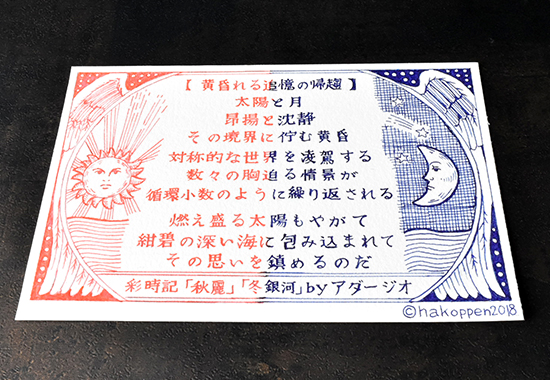 【 黄昏れる追憶の帰趨 】
太陽と月
昂揚と沈静
その境界に佇む黄昏
対称的な世界を凌駕する
数々の胸迫る情景が
循環小数のように繰り返される
燃え盛る太陽もやがて
紺碧の深い海に包み込まれて
その思いを鎮めるのだ
彩時記「秋麗」「冬銀河」byアダージオ
©hakoppen2018